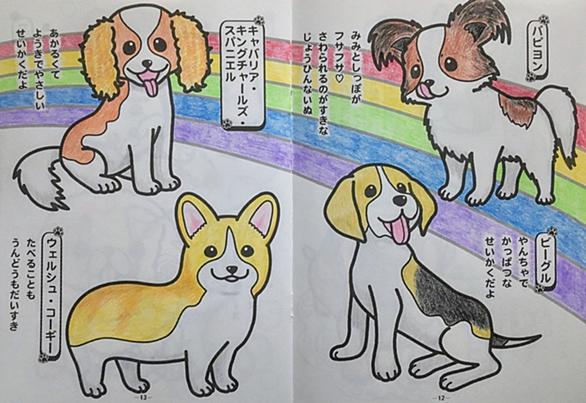 パピヨン
みみとしっぽが
フサフサ♡
さわられるのがすきな
じょうひんないぬ
ビーグル
やんちゃで
かっぱつな
せいかくだよ
-12-
キャバリア・
キングチャールズ・
スパニエル
あかるくて
ようきでやさしい
せいかくだよ
ウェルシュ・コーギー
たべることも
うんどうもだいすき
-13-